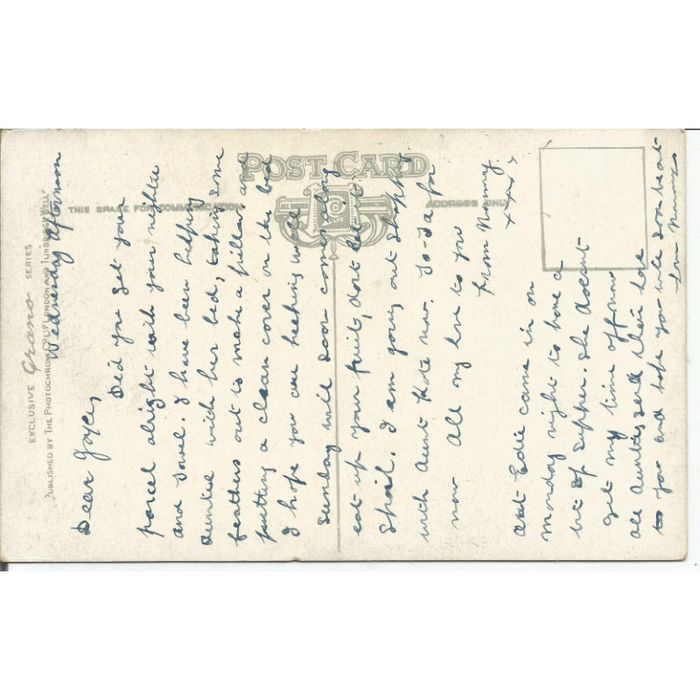 POST CARD
THIS SPACE FOR COMMUNICATION
ADDRESS ONLY
EXCLUSIVE Grano SERIES
PUBLISHED BY THE PHOTOCHROM CO. LTD. LONDON AND TUNBRIDGE WELLS
Wednesday afternoon
Dear Joyce,
Did you get your
parcel alright with your nightie
and towel. I have been helping
Auntie with her bed, taking some
feathers out to make a pillow and
putting a clean cover on the bed
I hope you are keeping well
Sunday will soon come along
eat up your fruit, dont let it
spoil. I am going out shopping
with Aunt Kate now. Ta-Ta for
now All my love to you
from Mummy.
xxxx
Aunt Edie came in on
Monday night to have a
bit of supper. She doesnt
get my time off now
all Aunties send their love
to you and hope you will soon be at